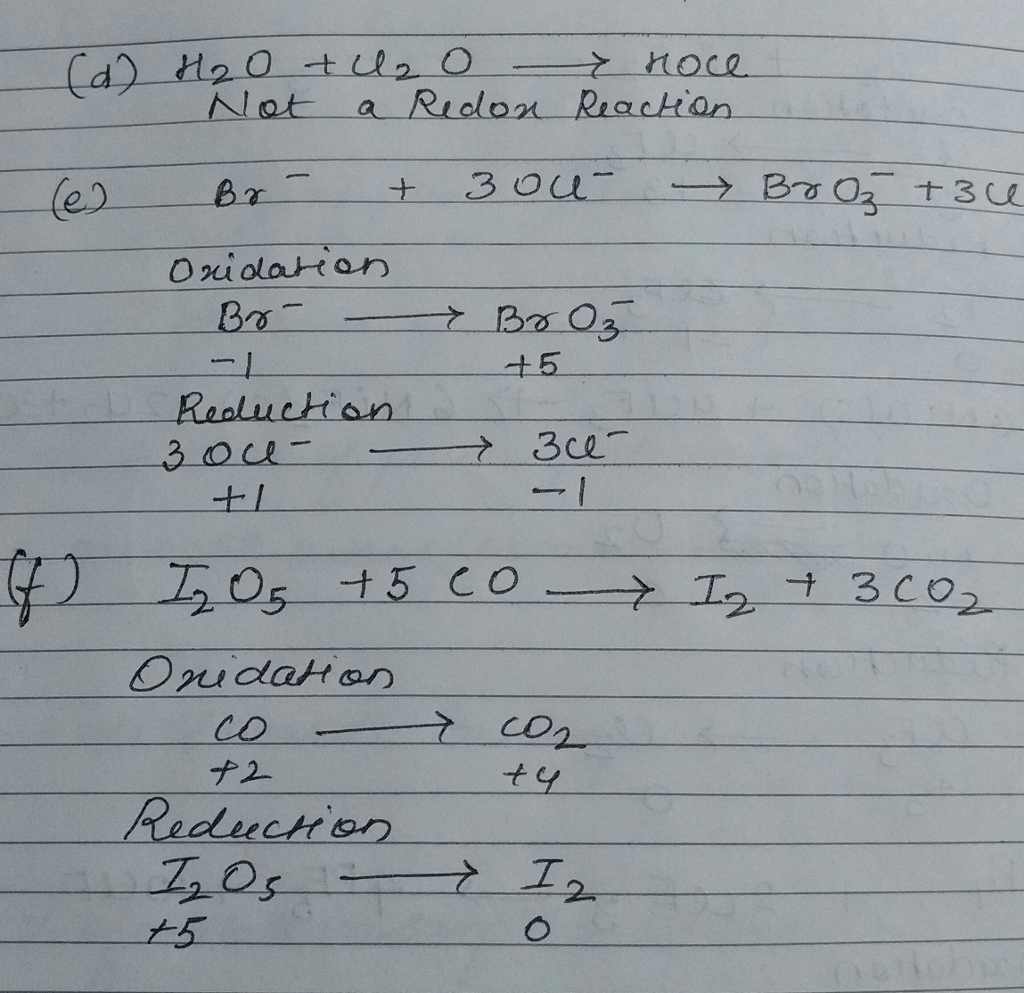 (d) H2O + Cl2O → HOCl
Not a Redox Reaction
(e) Br⁻ + 3 OCl⁻ → BrO3⁻ + 3Cl
Oxidation
Br⁻ → BrO3⁻
-1 +5
Reduction
3 OCl⁻ → 3Cl⁻
+1 -1
(f) I2O5 + 5 CO → I2 + 3 CO2
Oxidation
CO → CO2
+2 +4
Reduction
I2O5 → I2
+5 0